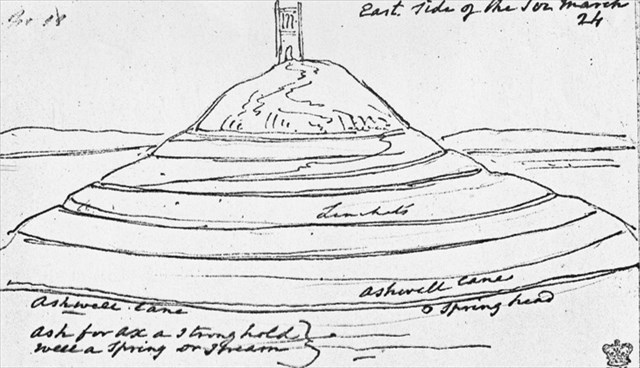 No 18
East. Side of the Tor March
24
Linchets
Ashwell Lane
o Spring head
Ashwell Lane
Ash for ax a Strong hold
well a Spring or Stream